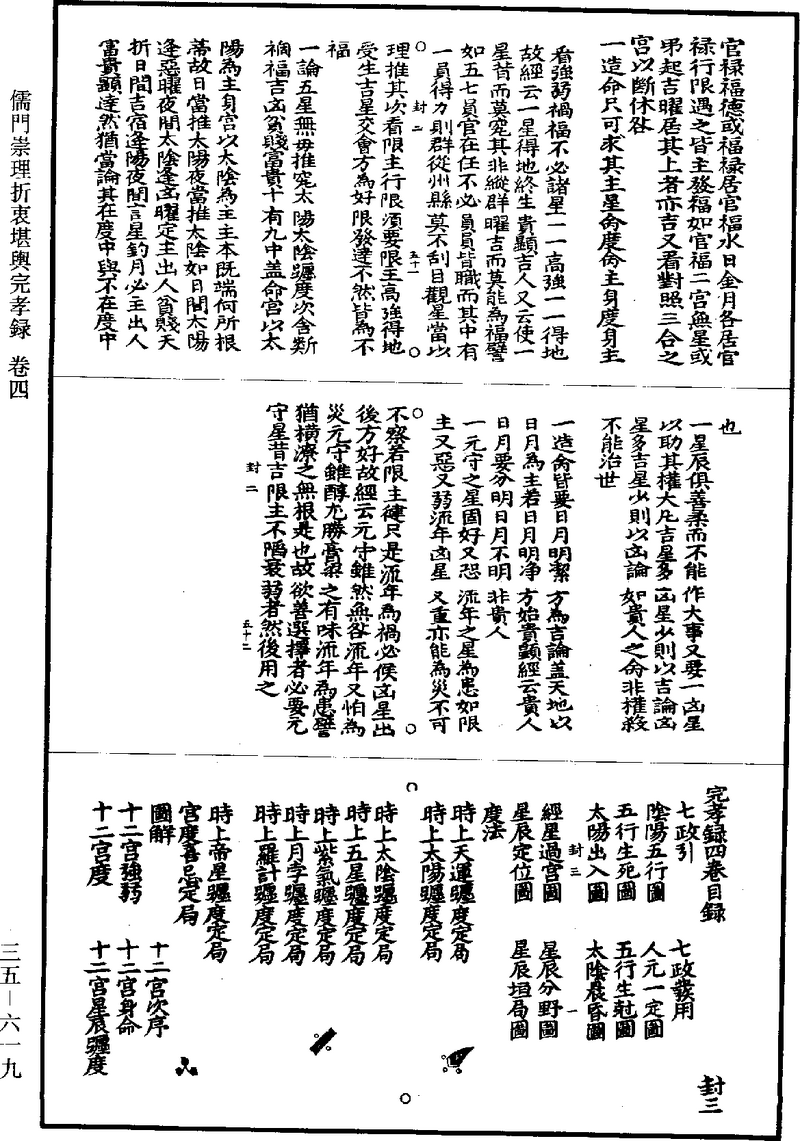 儒門崇理折衷堪輿完孝録 卷四
官禄福德或福禄居官福水日金月各居官
禄行限遇之皆主發福如官福二宫無星或
弔起吉曜居其上者亦吉又看對照三合之
宫以斷休咎
一造命只可求其主星命度命主身度身主
看強弱禍福不必諸星一一高強一一得地
故經云一星得地終生貴顯吉人又云使一
星昔而莫寃其非縱群曜吉而莫能為福譬
如五七員官在任不必員員皆職而其中有
一員得力則群從州縣莫不刮目觀星當以
封二
五十一
理推其次看限主行限須要限主高強得地
受生吉星交會方為好限發達不然皆為不
福
一論五星無毋推究太陽太陰躔度次含斷
禍福吉凶貧賤富貴十有九中盖命宫以太
陽為主身宫以太陰為主主本既端何所根
蒂故日當推太陽夜當推太陰如日間太陽
逢惡曜夜間太陰逢凶曜定主出人貧賤夭
折日間吉宿逢陽夜間言星釣月必主出人
富貴顯達然猶當論其在度中與不在度中
也
一星辰俱善柔而不能作大事又要一凶星
以助其權大凡吉星多凶星少則以吉論凶
星多吉星少則以凶論如貴人之命非權殺
不能治世
一造命皆要日月明潔方為吉論盖天地以
日月為主若日月明净方始貴顯經云貴人
日月要分明日月不明非貴人
一元守之星固好又恐流年之星為患如限
主又惡又弱流年凶星又重亦能為災不可
不察若限主健只是流年為禍必俟凶星出
後方好故經云元守雖然無咎流年又怕為
災元守雖醇尤勝膏粱之有味流年為患譬
猶横潦之無根是也故欲善選擇者必要元
守星昔吉限主不陷衰弱者然後用之
封二
五十二
完孝録四卷目録
七政引
七政載用
陰陽五行圖
人元一定圖
五行生死圖
五行生尅圖
太陽出入圖
太陰晨昏圖
封三
一
經星過宫圖
星辰分野圖
星辰定位圖
星辰垣局圖
度法
時上天運躔度定局
時上太陽躔度定局
時上太陰躔度定局
時上五星躔度定局
時上紫氣躔度定局
時上月孛躔度定局
時上羅計躔度定局
時上帝星躔度定局
宫度喜忌定局
圖解
十二宫次序
十二宫強弱
十二宫身命
十二宫度
十二宫星辰躔度
封三
三五－六一九